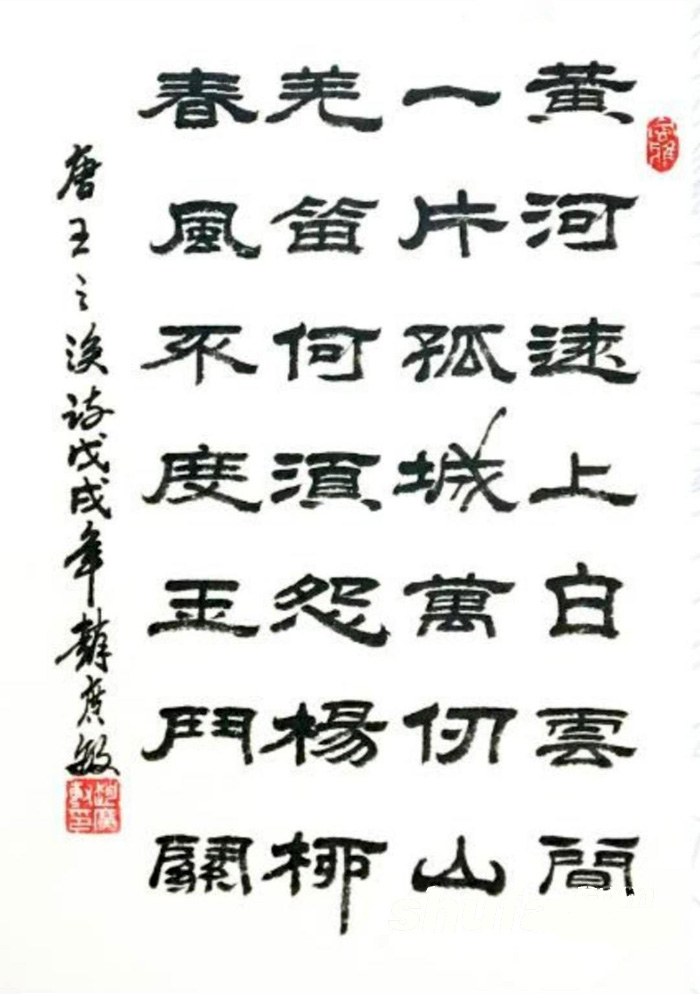 黄河遠上白雲間
一片孤城萬仞山
羌笛何須怨楊柳
春風不度玉門關
唐王之涣诗戊戌年广敏